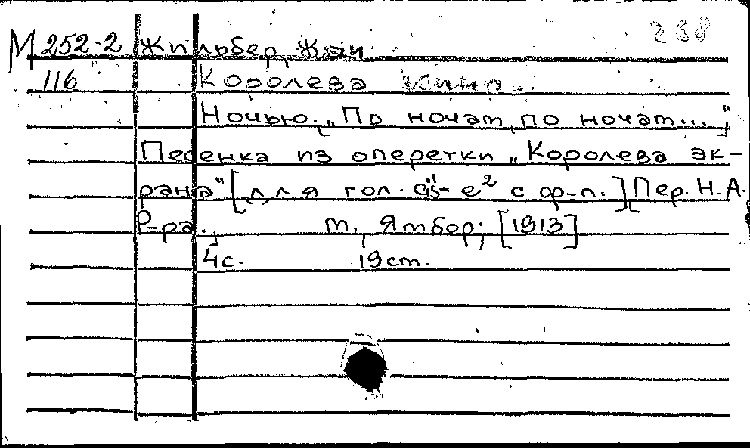 M 252-2 Жильбер, Жан 238
116 Королева кино.
Ночью. „По ночам, по ночам..."
Песенка из оперетки „Королева эк-
рана" [для гол. с ф-п.] Пер. Н. А.
Р-ра. т. Ямбор; [1913]
4с. 19см.